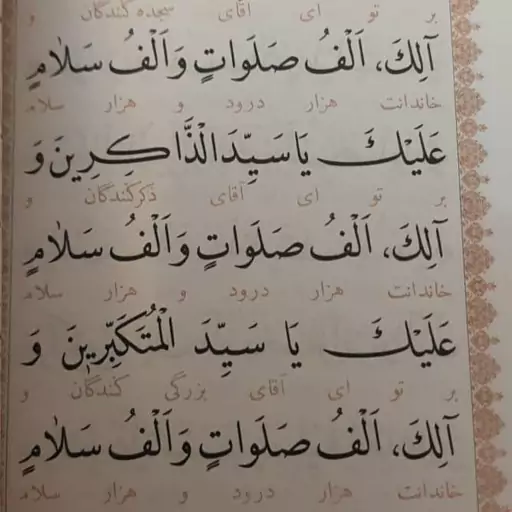 بر تو ای آقای سجده کنندگان و
آلِكَ، اَلْفُ صَلَواتٍ وَ اَلْفُ سَلاٰمٍ
خاندانت هزار درود و هزار سلام
عَلَيْكَ يَا سَيِّدَ الْذَّاكِرِينَ وَ
بر تو ای آقای ذکرکنندگان و
آلِكَ، اَلْفُ صَلَواتٍ وَ اَلْفُ سَلاٰمٍ
خاندانت هزار درود و هزار سلام
عَلَيْكَ يَا سَيِّدَ الْمُتَكَبِّرِينَ وَ
بر تو ای آقای بزرگی کنندگان و
آلِكَ، اَلْفُ صَلَواتٍ وَ اَلْفُ سَلاٰمٍ
خاندانت هزار درود و هزار سلام